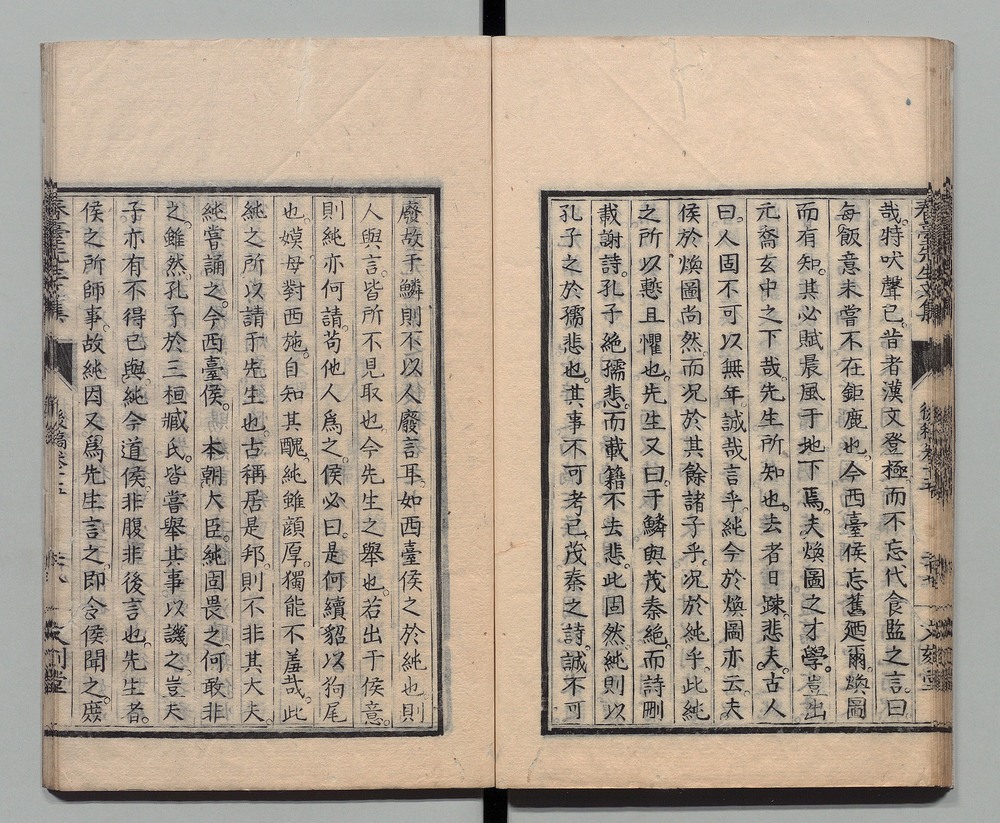 哉。特吠聲已。昔者漢文登極而不忘代食監之言。曰
每飯意未嘗不在鉅鹿也。今西臺侯忘舊廼爾。煥圖
而有知。其必賦晨風于地下焉。夫煥圖之才學。豈出
元喬玄中之下哉。先生所知也。去者日疎。悲夫。古人
曰。人固不可以無年。誠哉言乎。純今於煥圖亦云。夫
侯於煥圖尚然。而况於其餘諸子乎。况於純乎。此純
之所以慙且懼也。先生又曰。于鱗與茂秦絶。而詩刪
載謝詩。孔子絶孺悲。而載籍不去悲。此固然。純則以
孔子之於孺悲也。其事不可考已。茂秦之詩。誠不可
廢。故于鱗則不以人廢言耳。如西臺侯之於純也。則
人與言。皆所不見取也。今先生之舉也。若出于侯意。
則純亦何請。苟他人爲之。侯必曰。是何續貂以狗尾
也。嫫母對西施。自知其醜。純雖顔厚。獨能不羞哉。此
純之所以請于先生也。古稱居是邦。則不非其大夫。
純嘗誦之。今西臺侯。 本朝大臣。純固畏之。何敢非
之。雖然。孔子於三桓臧氏。皆嘗舉其事以譏之。豈夫
子亦有不得已與。純今道侯。非腹非後言也。先生者。
侯之所師事。故純因又爲先生言之。即令侯聞之。庶
春臺先生文集
後稿卷十五